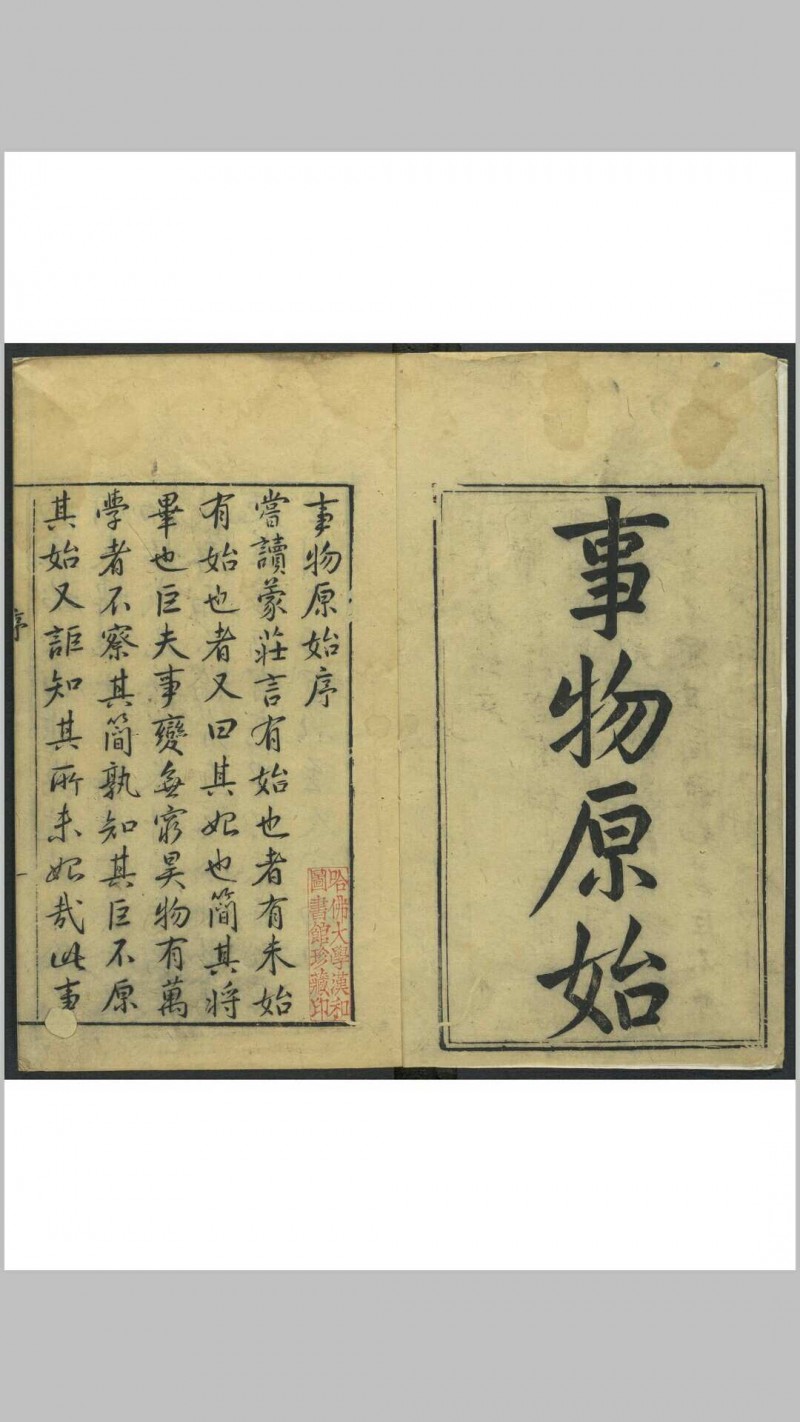 事物原始
事物原始序
嘗讀蒙莊言有始也者有未始
有始也者又曰其始也簡其將
畢也巨夫事變無窮昊物有萬
學者不察其簡孰知其巨不原
其始又詎知其所未始哉此事
哈佛大學漢和
圖書館珍藏印
序